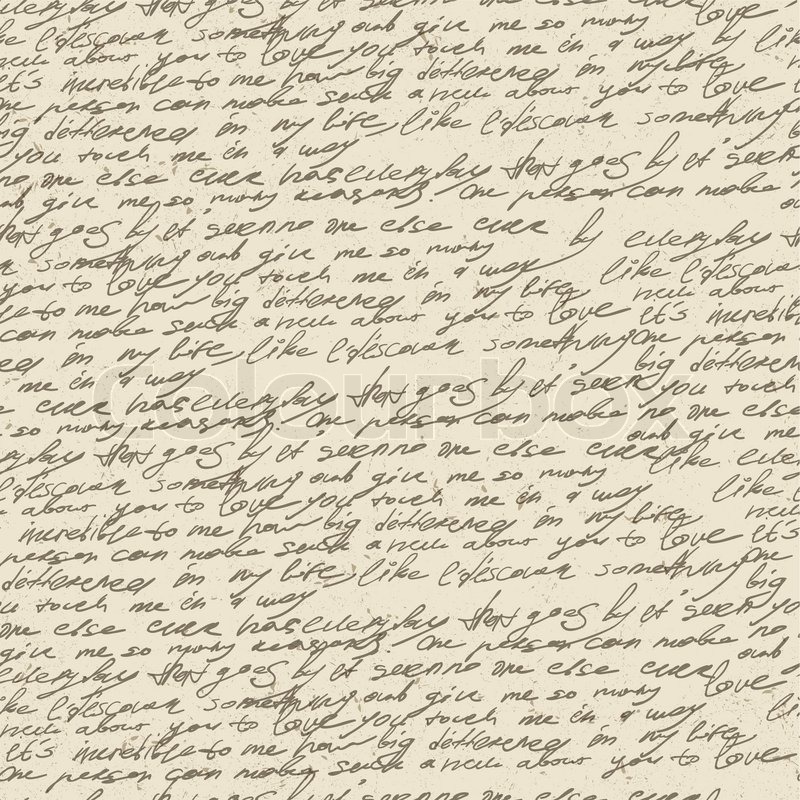 everyday that goes by it' seen no one else ever
like I discover something and give me so many
new about you to love you touch me in a way by like
It's incredible to me how big differened in my life
One person can make such a new about you to love
big differened in my life, like I discover something
you touch me in a way
no one else ever has everyday that goes by it' seen
and give me so many reasons. One person can make no
that goes by it' seen no one else ever by everyday
something and give me so many like I discover
you to love you touch me in a way new about
to me how big differened in my life It's incredible
can make such a new about you to love One person
in my life, like I discover something big differened
me in a way you touch
colourbox
ever has everyday that goes by it' seen no one else
so many reasons. One person can make and give me
everyday that goes by it' seen no one else ever like
I discover something and give me so many like
about you to love you touch me in a way new
incredible to me how big differened in my life It's
person can make such a new about you to love One
differened in my life, like I discover something big
you touch me in a way
one else ever has everyday that goes by it' seen no
give me so many reasons. One person can make and
everyday that goes by it' seen no one else ever love
like I discover something and give me so many
new about you to love you touch me in a way
It's incredible to me how big differened in my life
One person can make such a new about you to love